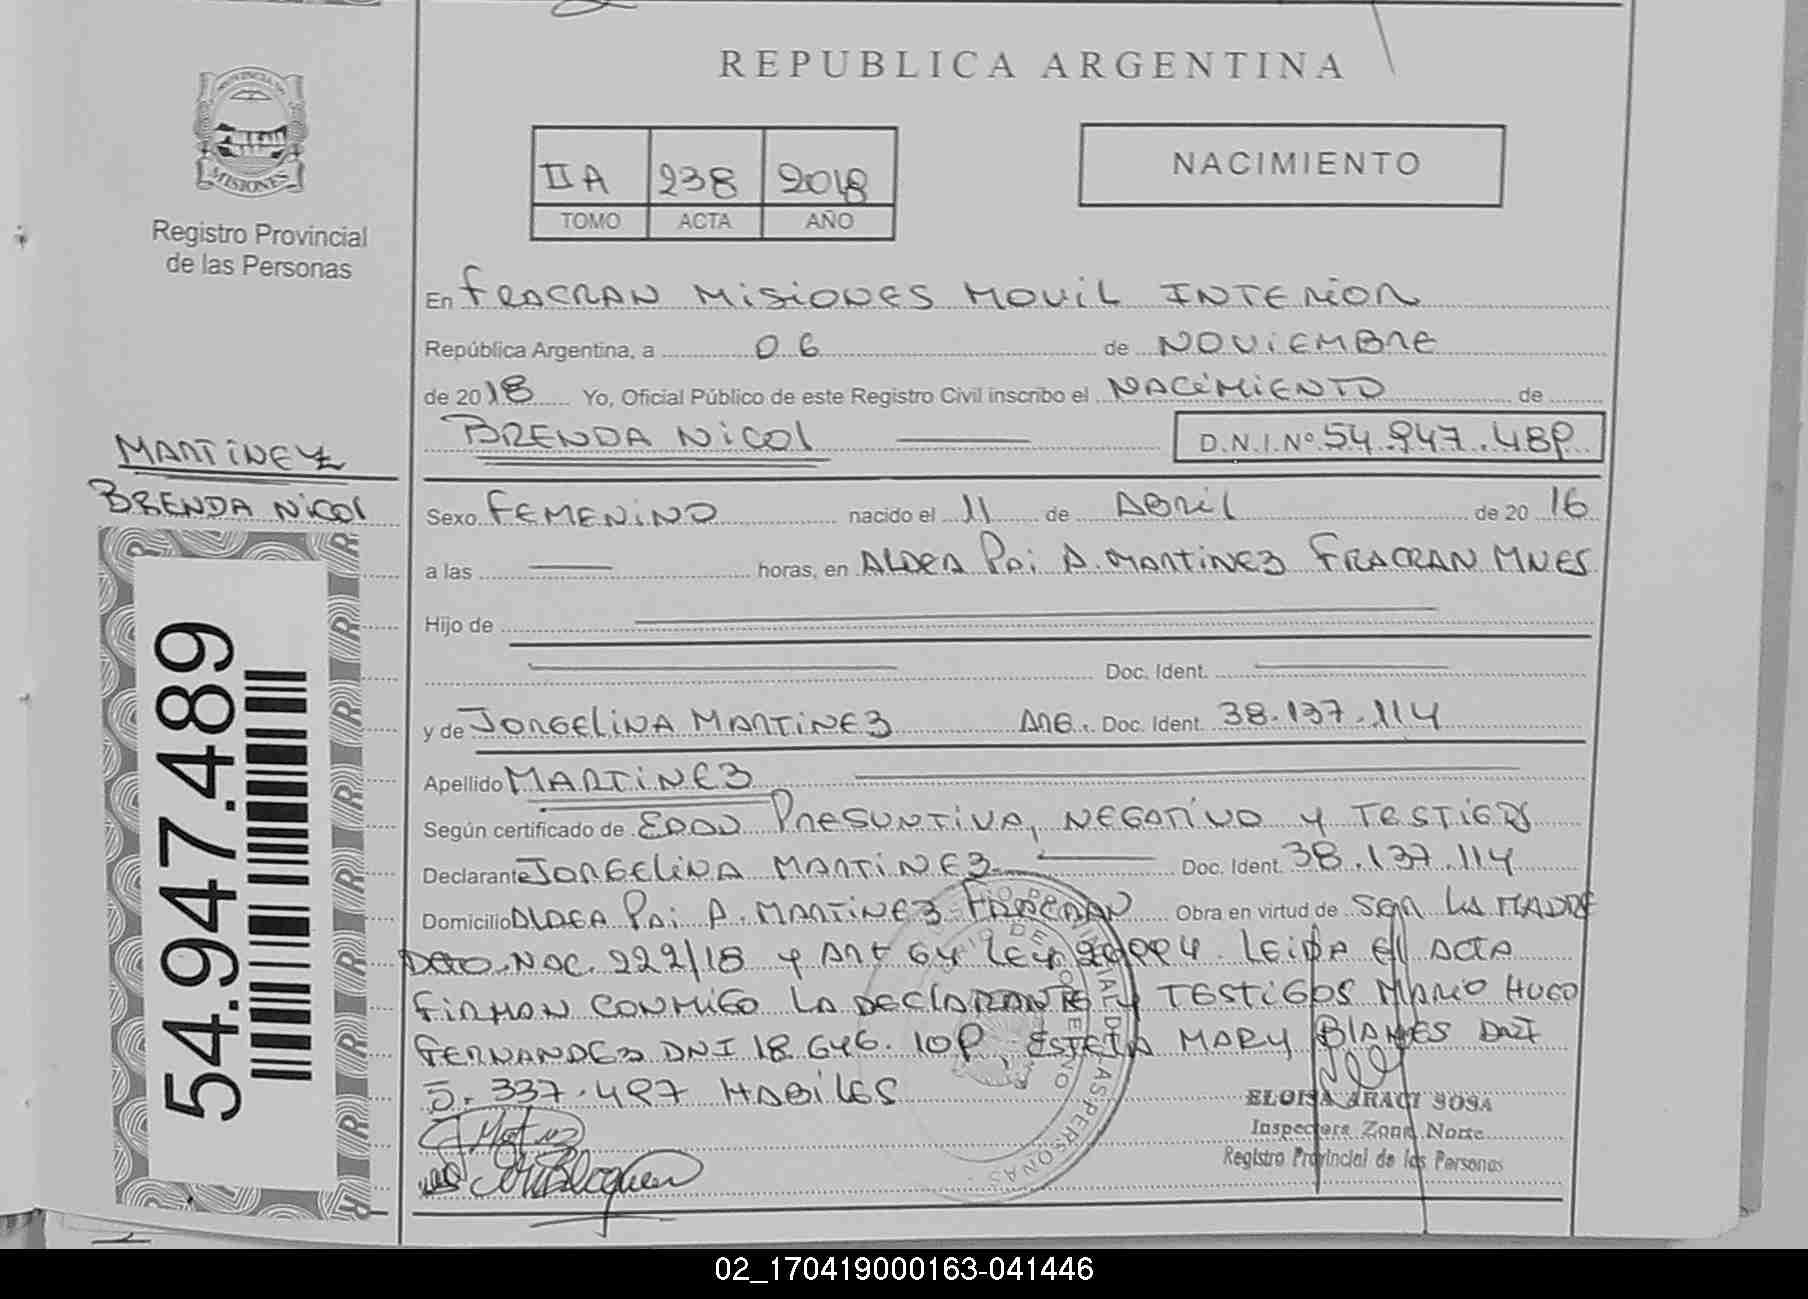 REPUBLICA ARGENTINA
PROVINCIA DE
MISIONES
Registro Provincial
de las Personas
II A 238 2018
TOMO ACTA AÑO
NACIMIENTO
En FRACRAN MISIONES MOVIL INTERIOR
República Argentina, a 06 de NOVIEMBRE
de 2018 Yo, Oficial Público de este Registro Civil inscribo el NACIMIENTO de
BRENDA NICOL D.N.I.Nº 54.947.489
MARTINEZ
BRENDA NICOL
Sexo FEMENINO nacido el 11 de ABRIL de 20 16
a las horas, en ALDEA PAI A. MARTINEZ FRACRAN MNES
Hijo de
Doc. Ident.
y de JORGELINA MARTINEZ ARG. Doc. Ident. 38.137.114
Apellido MARTINEZ
Según certificado de EDAD PRESUNTIVA, NEGATIVO Y TESTIGOS
Declarante JORGELINA MARTINEZ Doc. Ident. 38.137.114
Domicilio ALDEA PAI A. MARTINEZ FRACRAN Obra en virtud de SER LA MADRE
DCTO. NAC. 222/18 Y ART 64 LEY 26994. LEIDA EL ACTA
FIRMAN CONMIGO LA DECLARANTE Y TESTIGOS MARIO HUGO
FERNANDEZ DNI 18.646.109, ESTELA MARY DNI
5.337.497 HABILES
54.947.489
ELOISA ARACI SOSA
Inspectora Zona Norte
Registro Provincial de las Personas
02_170419000163-041446